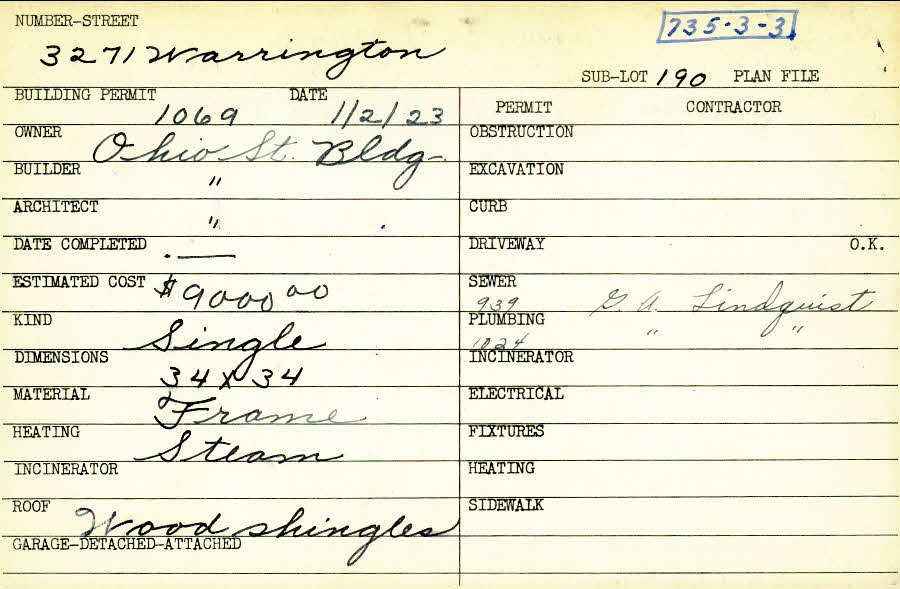 NUMBER-STREET
735-3-3
3271 Warrington
SUB-LOT 190 PLAN FILE
BUILDING PERMIT DATE
1069 1/2/23
PERMIT CONTRACTOR
OWNER Ohio St. Bldg.
OBSTRUCTION
BUILDER "
EXCAVATION
ARCHITECT "
CURB
DATE COMPLETED —
DRIVEWAY O.K.
ESTIMATED COST $9000 00
SEWER
939 G. A. Lindquist
KIND Single
PLUMBING " "
1024
DIMENSIONS 34 x 34
INCINERATOR
MATERIAL Frame
ELECTRICAL
HEATING Steam
FIXTURES
INCINERATOR
HEATING
ROOF Wood shingles
SIDEWALK
GARAGE-DETACHED-ATTACHED